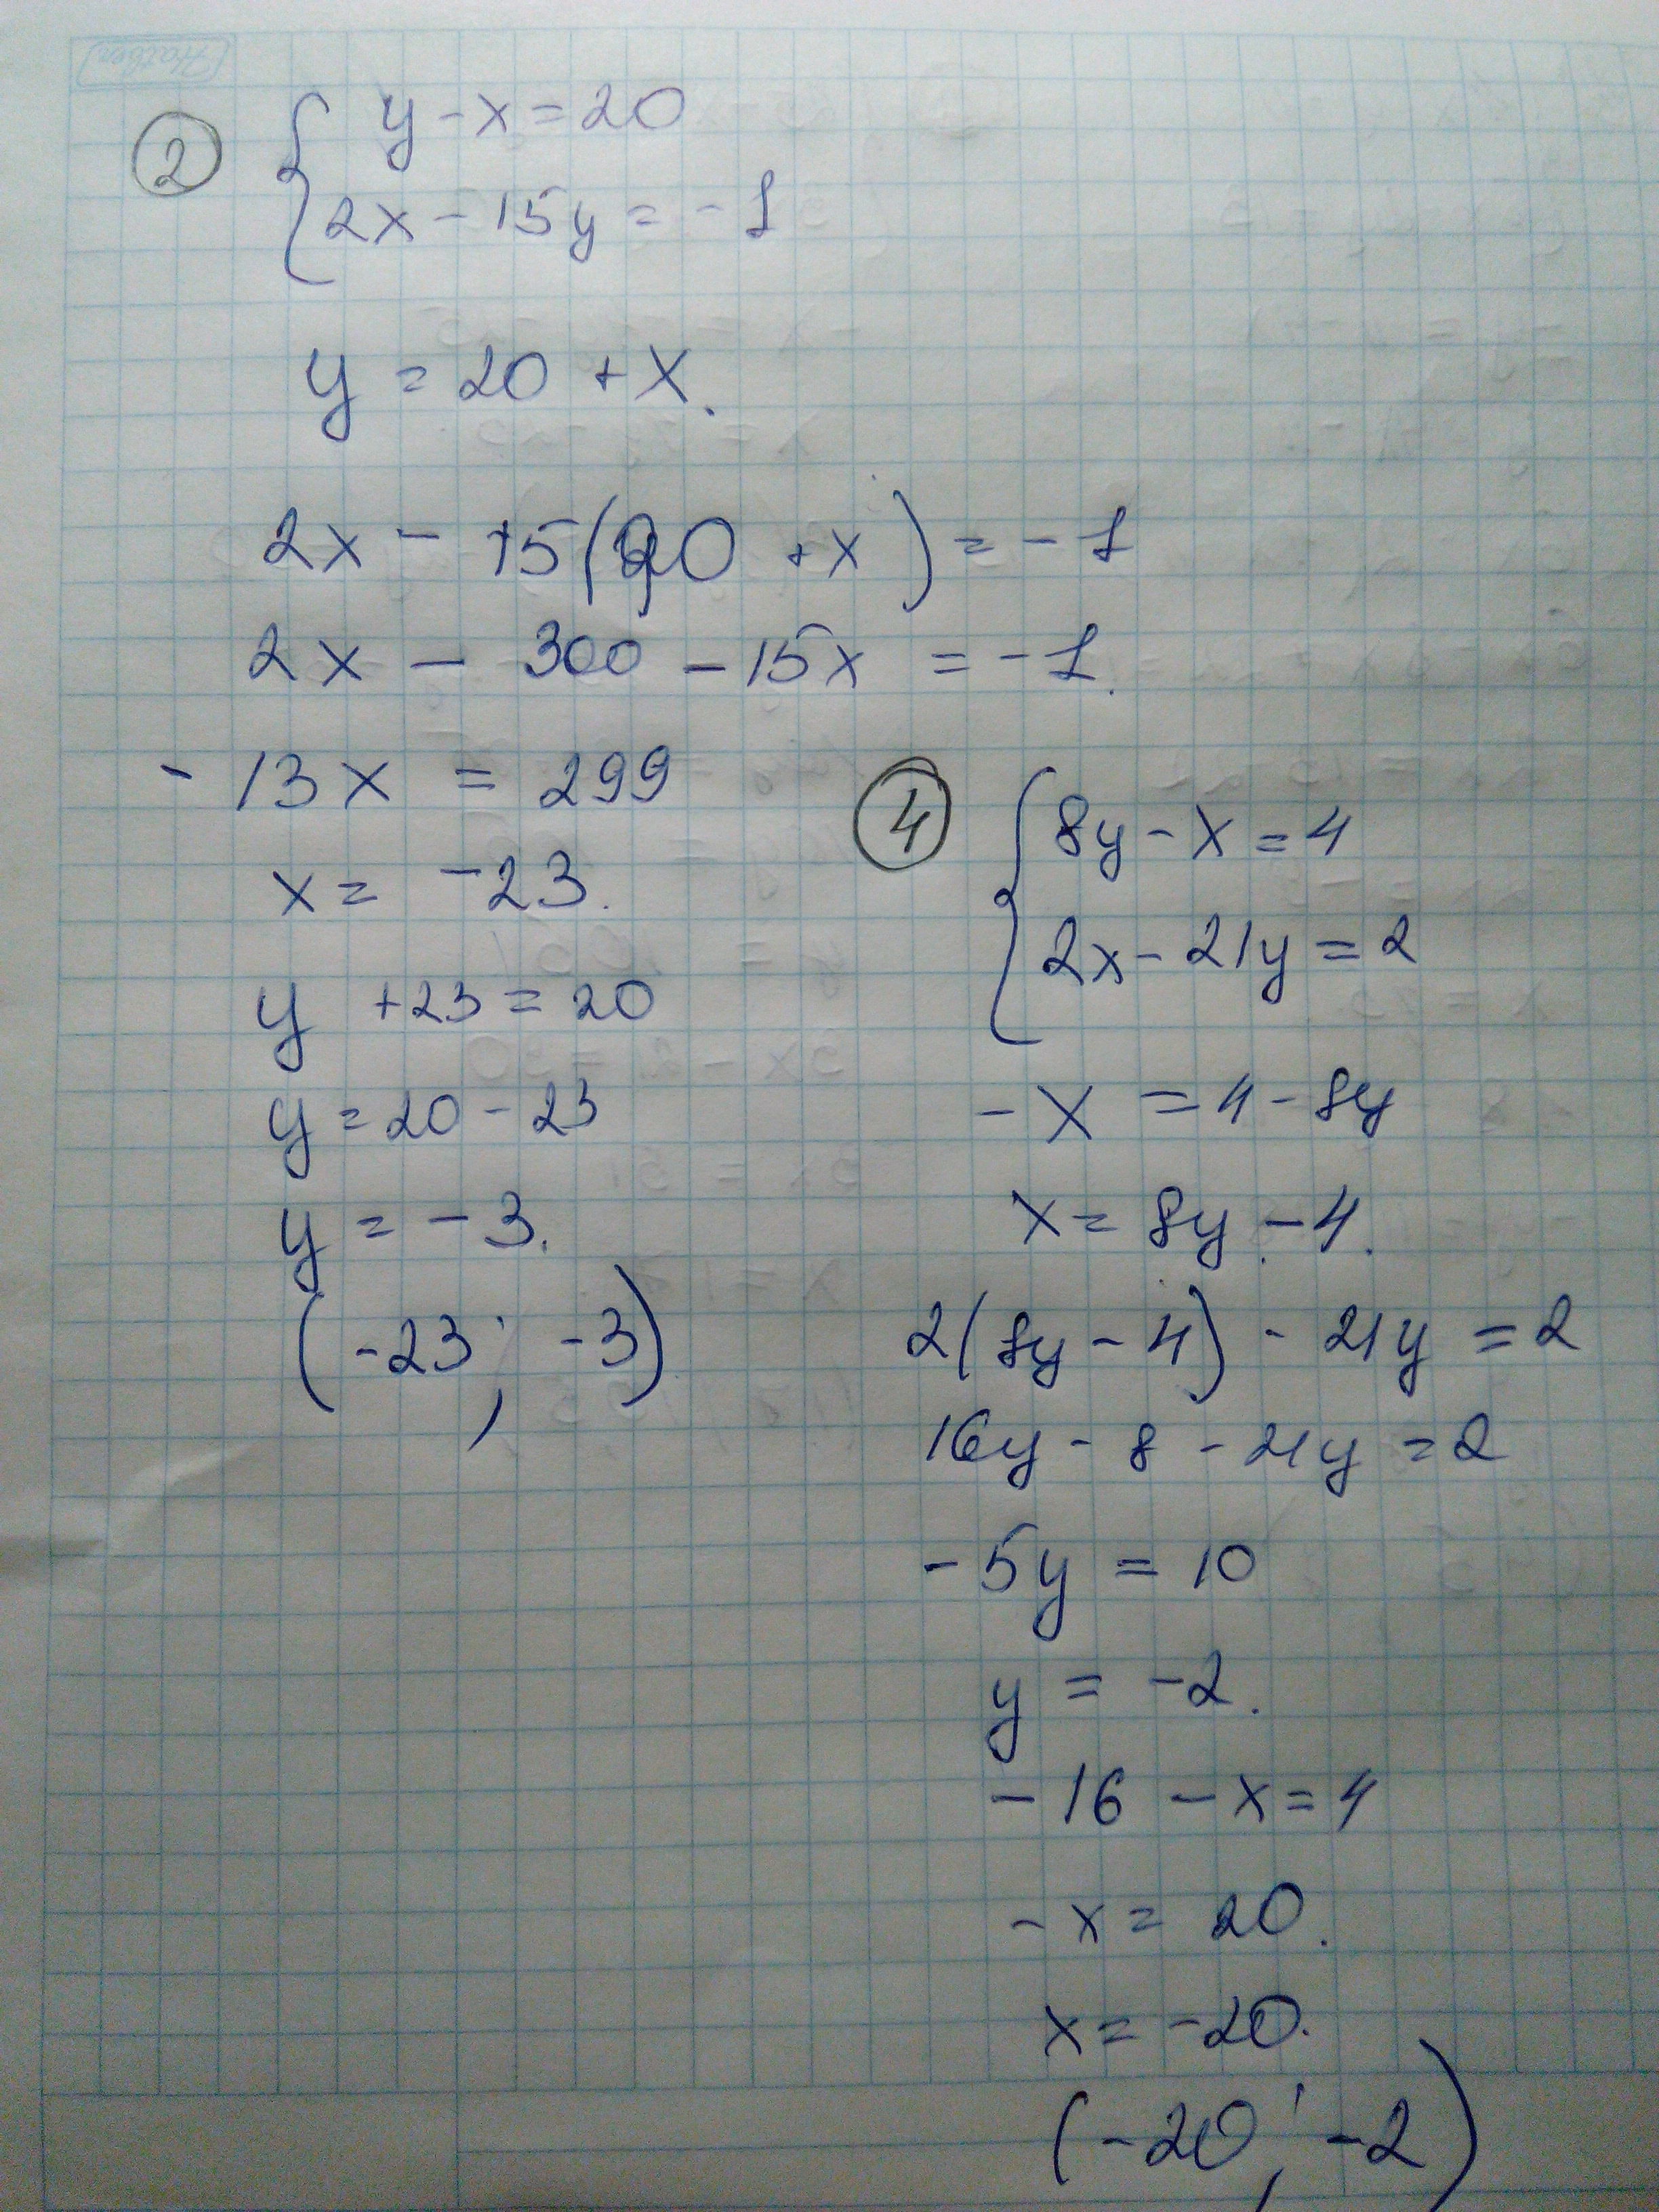 2
y - x = 20
2x - 15y = -1
y = 20 + x.
2x - 15(20 + x) = -1
2x - 300 - 15x = -1.
-13x = 299
x = -23.
y + 23 = 20
y = 20 - 23
y = -3.
(-23; -3)
4
8y - x = 4
2x - 21y = 2
-x = 4 - 8y
x = 8y - 4.
2(8y - 4) - 21y = 2
16y - 8 - 21y = 2
-5y = 10
y = -2.
-16 - x = 4
-x = 20.
x = -20.
(-20; -2)